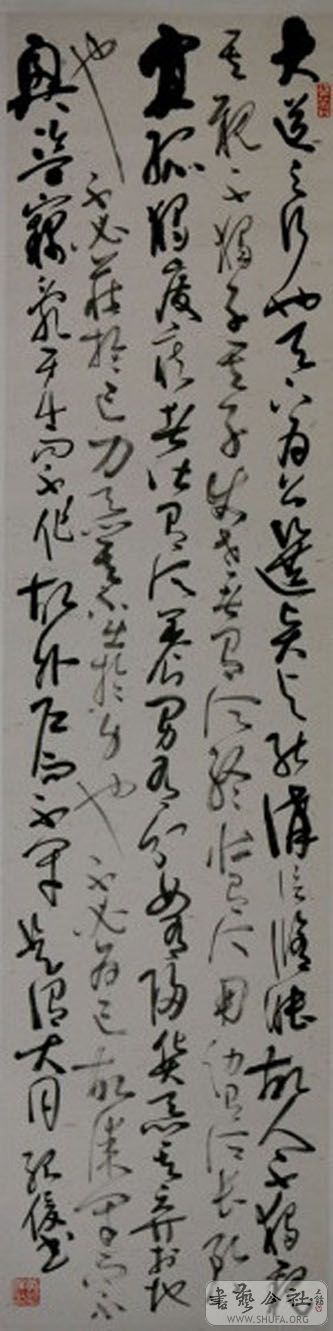 大道之行也天下为公選贤与能講信脩睦故人不獨親
其親不獨子其子使老者有所終壮有所用幼有所長矜
寡孤獨廢疾者皆有所養男有分女有歸貨恶其弃於地
也不必藏於己力恶其不出於身也不必為己故謀閉而不
興盗竊亂而不作故外户而不閉是謂大同
書藝公社
WWW.SHUFA.ORG